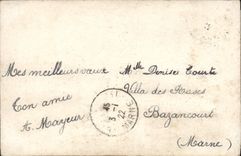 Mes meilleurs vœux
Ton amie
A. Mayeur
Mlle Denise Courte
Villa des Roses
Bazancourt
(Marne)
45
3 - 1
22
MARNE